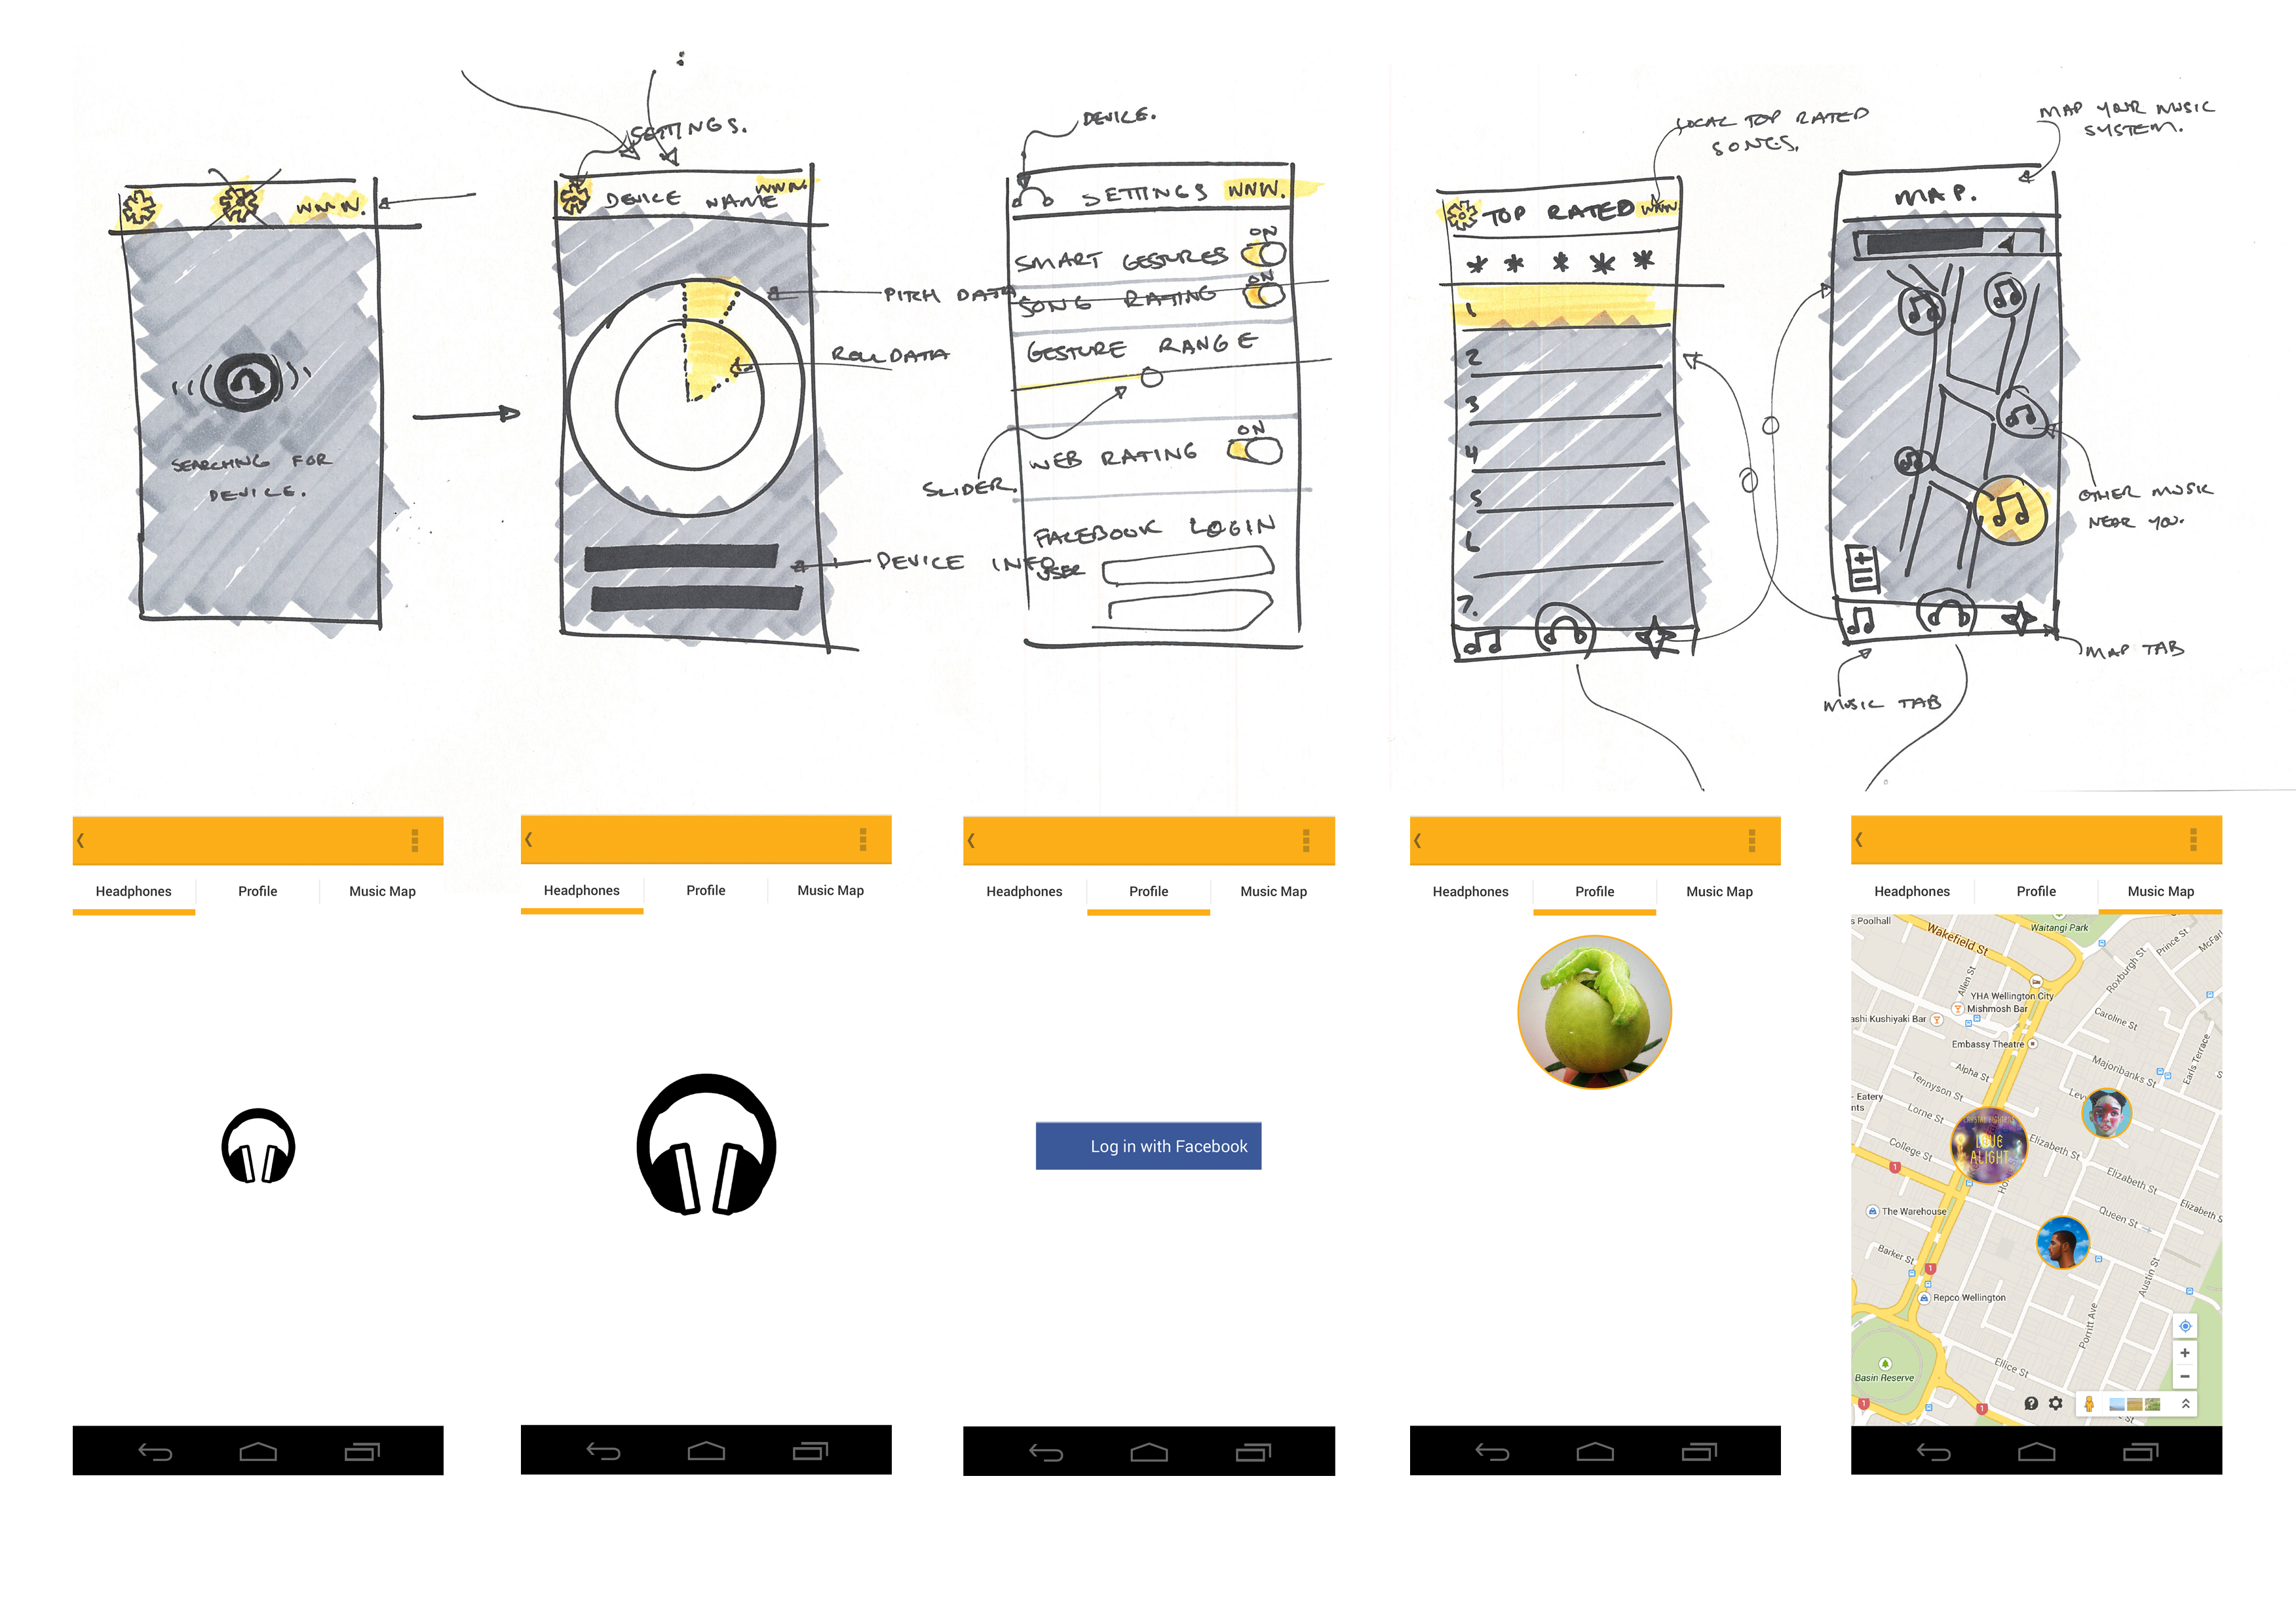 WWW.
SEARCHING FOR
DEVICE.
SETTINGS.
DEVICE NAME
WWW.
PITCH DATA
ROLL DATA
DEVICE INFO
DEVICE.
SETTINGS WWW.
SMART GESTURES
ON
SONG RATING
ON
GESTURE RANGE
SLIDER.
WEB RATING
ON
FACEBOOK LOGIN
USER
LOCAL TOP RATED
SONGS.
TOP RATED
WWW.
* * * * *
1
2
3
4
5
6
7.
MAP YOUR MUSIC
SYSTEM.
MAP.
OTHER MUSIC
NEAR YOU.
MAP TAB
MUSIC TAB
Headphones Profile Music Map
Headphones Profile Music Map
Headphones Profile Music Map
Log in with Facebook
Headphones Profile Music Map
Headphones Profile Music Map
s Poolhall
Waitangi Park
Wakefield St
Prince St
McFarl
Roxburgh St
Allen St
YHA Wellington City
Mishmosh Bar
ashi Kushiyaki Bar
Caroline St
Embassy Theatre
Earls Terrace
Majoribanks St
Alpha St
Tennyson St
Lev
- Eatery
nts
Lorne St
LOVE
ALIGHT
College St
Elizabeth St
Elizabeth St
Elizabeth S
1
Ho
The Warehouse
Queen St
Barker St
1
Austin St
Repco Wellington
Porritt Ave
Ellice St
Basin Reserve
1
1
St